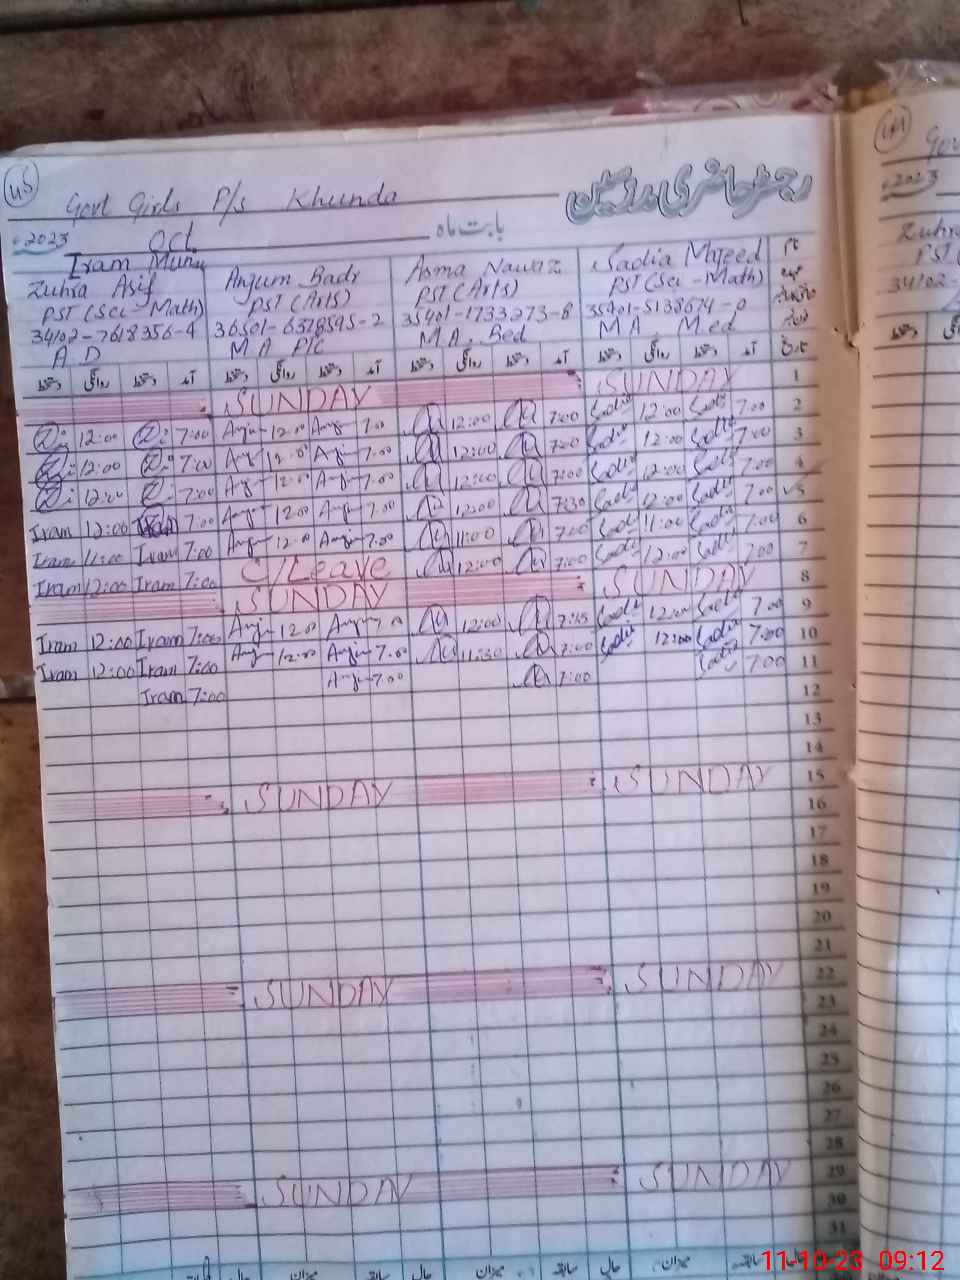 45
Govt Girls P/s Khunda
رجسٹر حاضری مدرسین
2023
Oct
بابت ماہ
Iram Munir
Zuhra Asif
PST (Sci-Math)
34102-7618356-4
A.D
Anjum Badr
PST (Arts)
36501-6378595-2
M A PTC
Asma Nawaz
PST (Arts)
35401-1733273-8
M.A. Bed
Sadia Majeed
PST (Sci-Math)
35401-5138674-0
M A M.ed
نام
عہدہ
تاریخ
دستخط روانگی دستخط آمد دستخط روانگی دستخط آمد دستخط روانگی دستخط آمد دستخط روانگی دستخط آمد
SUNDAY SUNDAY 1
12:00 7:00 Anju 12.00 Anju 7.00 12:00 7:00 Sadia 12:00 Sadia 7:00 2
12:00 7:00 Anju 12.00 Anju 7.00 12:00 7:00 Sadia 12:00 Sadia 7:00 3
12:00 7:00 Anju 12.00 Anju 7.00 12:00 7:00 Sadia 12:00 Sadia 7:00 4
Iram 12:00 Iram 7:00 Anju 12.00 Anju 7.00 12:00 7:30 Sadia 12:00 Sadia 7:00 5
Iram 11:00 Iram 7:00 Anju 12.00 Anju 7.00 11:00 7:00 Sadia 11:00 Sadia 7:00 6
Iram 12:00 Iram 7:00 C/Leave 12:00 7:00 Sadia 12:00 Sadia 7:00 7
SUNDAY SUNDAY 8
Iram 12:00 Iram 7:00 Anju 12.00 Anju 7.00 12:00 7:45 Sadia 12:00 Sadia 7:00 9
Iram 12:00 Iram 7:00 Anju 12.00 Anju 7.00 11:30 7:00 Sadia 12:00 Sadia 7:00 10
Iram 7:00 Anju 7.00 7:00 Sadia 7:00 11
12
13
14
SUNDAY SUNDAY 15
16
17
18
19
20
21
SUNDAY SUNDAY 22
23
24
25
26
27
28
SUNDAY SUNDAY 29
30
31
میزان سابقہ حال میزان سابقہ حال میزان سابقہ حال
2023
Zuhra
PST
34102-
11-10-23 09:12